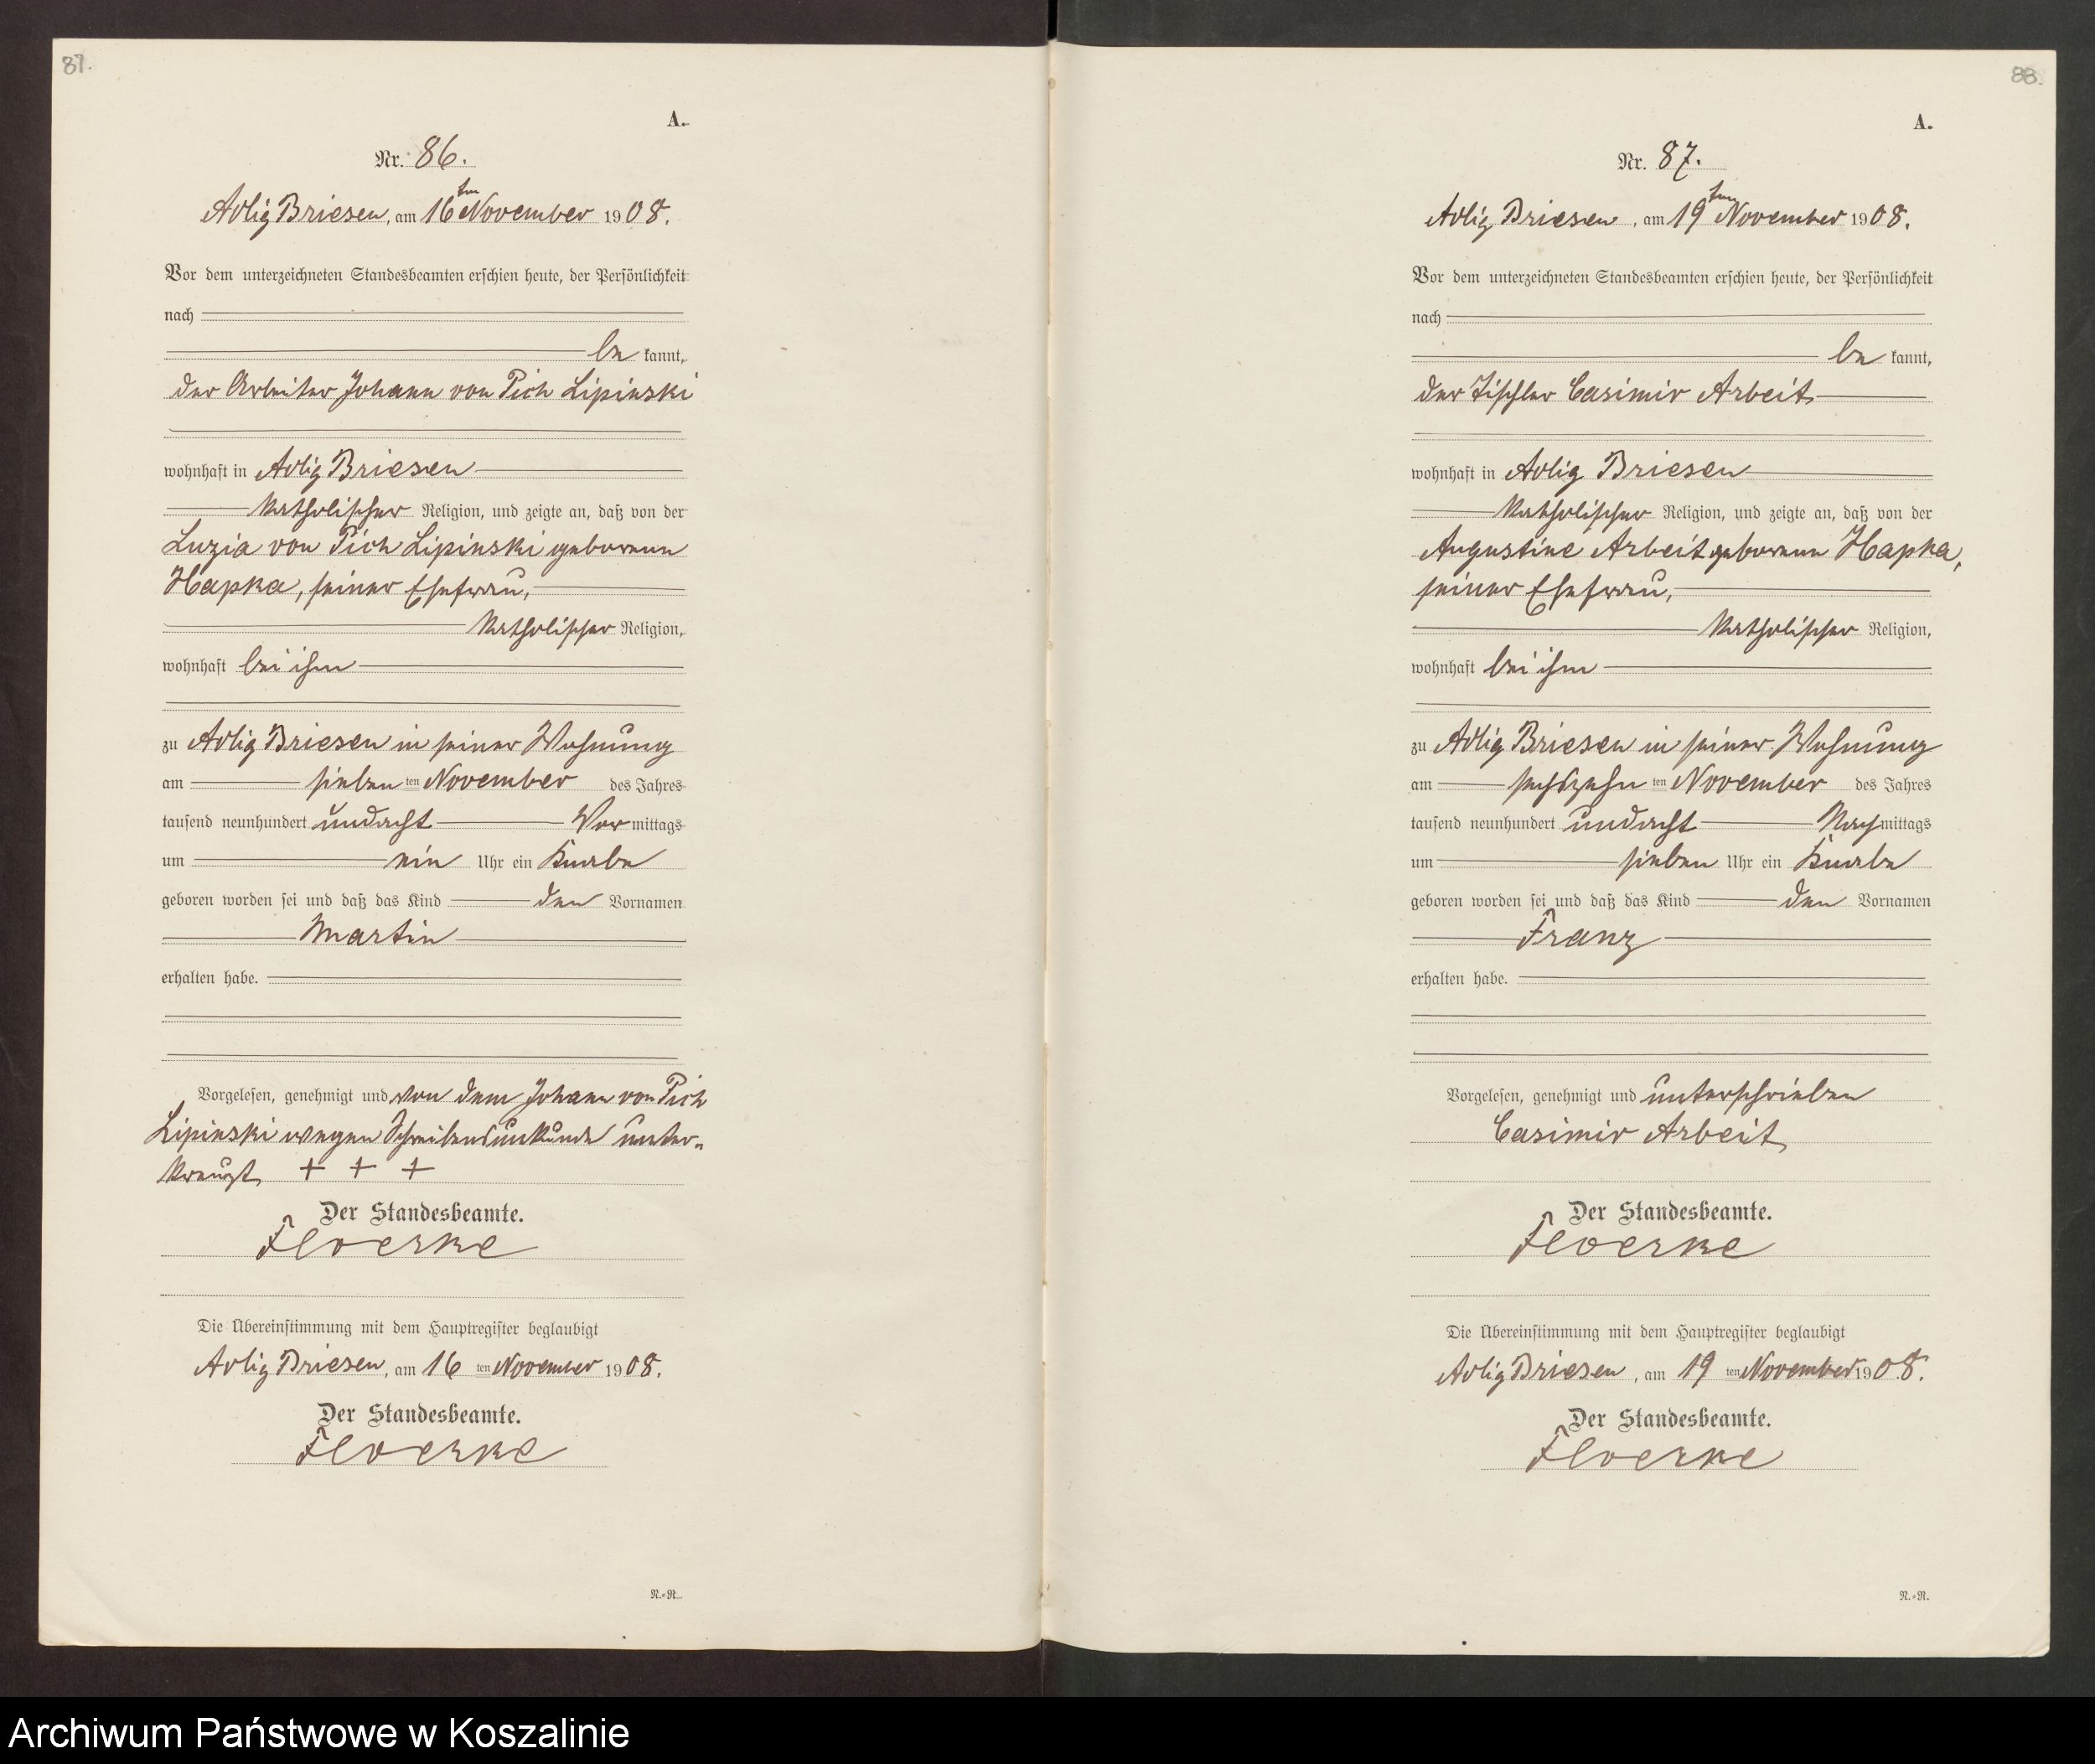 87.
A.
Nr. 86.
Adlig Briesen, am 16ten November 1908.
Vor dem unterzeichneten Standesbeamten erschien heute, der Persönlichkeit
nach
be kannt,
der Arbeiter Johann von Pich Lipinski
wohnhaft in Adlig Briesen
katholischer Religion, und zeigte an, daß von der
Luzia von Pich Lipinski geborenen
Hapka, seiner Ehefrau,
katholischer Religion,
wohnhaft bei ihm
zu Adlig Briesen in seiner Wohnung
am sieben ten November des Jahres
tausend neunhundert undacht Vor mittags
um ein Uhr ein Knabe
geboren worden sei und daß das Kind den Vornamen
Martin
erhalten habe.
Vorgelesen, genehmigt und von dem Johann von Pich
Lipinski wegen Schreibensunkunde unter-
kreuzt + + +
Der Standesbeamte.
Floerke
Die Übereinstimmung mit dem Hauptregister beglaubigt
Adlig Briesen, am 16 ten November 1908.
Der Standesbeamte.
Floerke
N.=R.
88.
A.
Nr. 87.
Adlig Briesen, am 19ten November 1908.
Vor dem unterzeichneten Standesbeamten erschien heute, der Persönlichkeit
nach
be kannt,
der Tischler Casimir Arbeit
wohnhaft in Adlig Briesen
katholischer Religion, und zeigte an, daß von der
Augustine Arbeit geborenen Hapka,
seiner Ehefrau,
katholischer Religion,
wohnhaft bei ihm
zu Adlig Briesen in seiner Wohnung
am sechszehn ten November des Jahres
tausend neunhundert undacht Nachmittags
um sieben Uhr ein Knabe
geboren worden sei und daß das Kind den Vornamen
Franz
erhalten habe.
Vorgelesen, genehmigt und unterschrieben
Casimir Arbeit
Der Standesbeamte.
Floerke
Die Übereinstimmung mit dem Hauptregister beglaubigt
Adlig Briesen, am 19 ten November 1908.
Der Standesbeamte.
Floerke
N.=R.
Archiwum Państwowe w Koszalinie